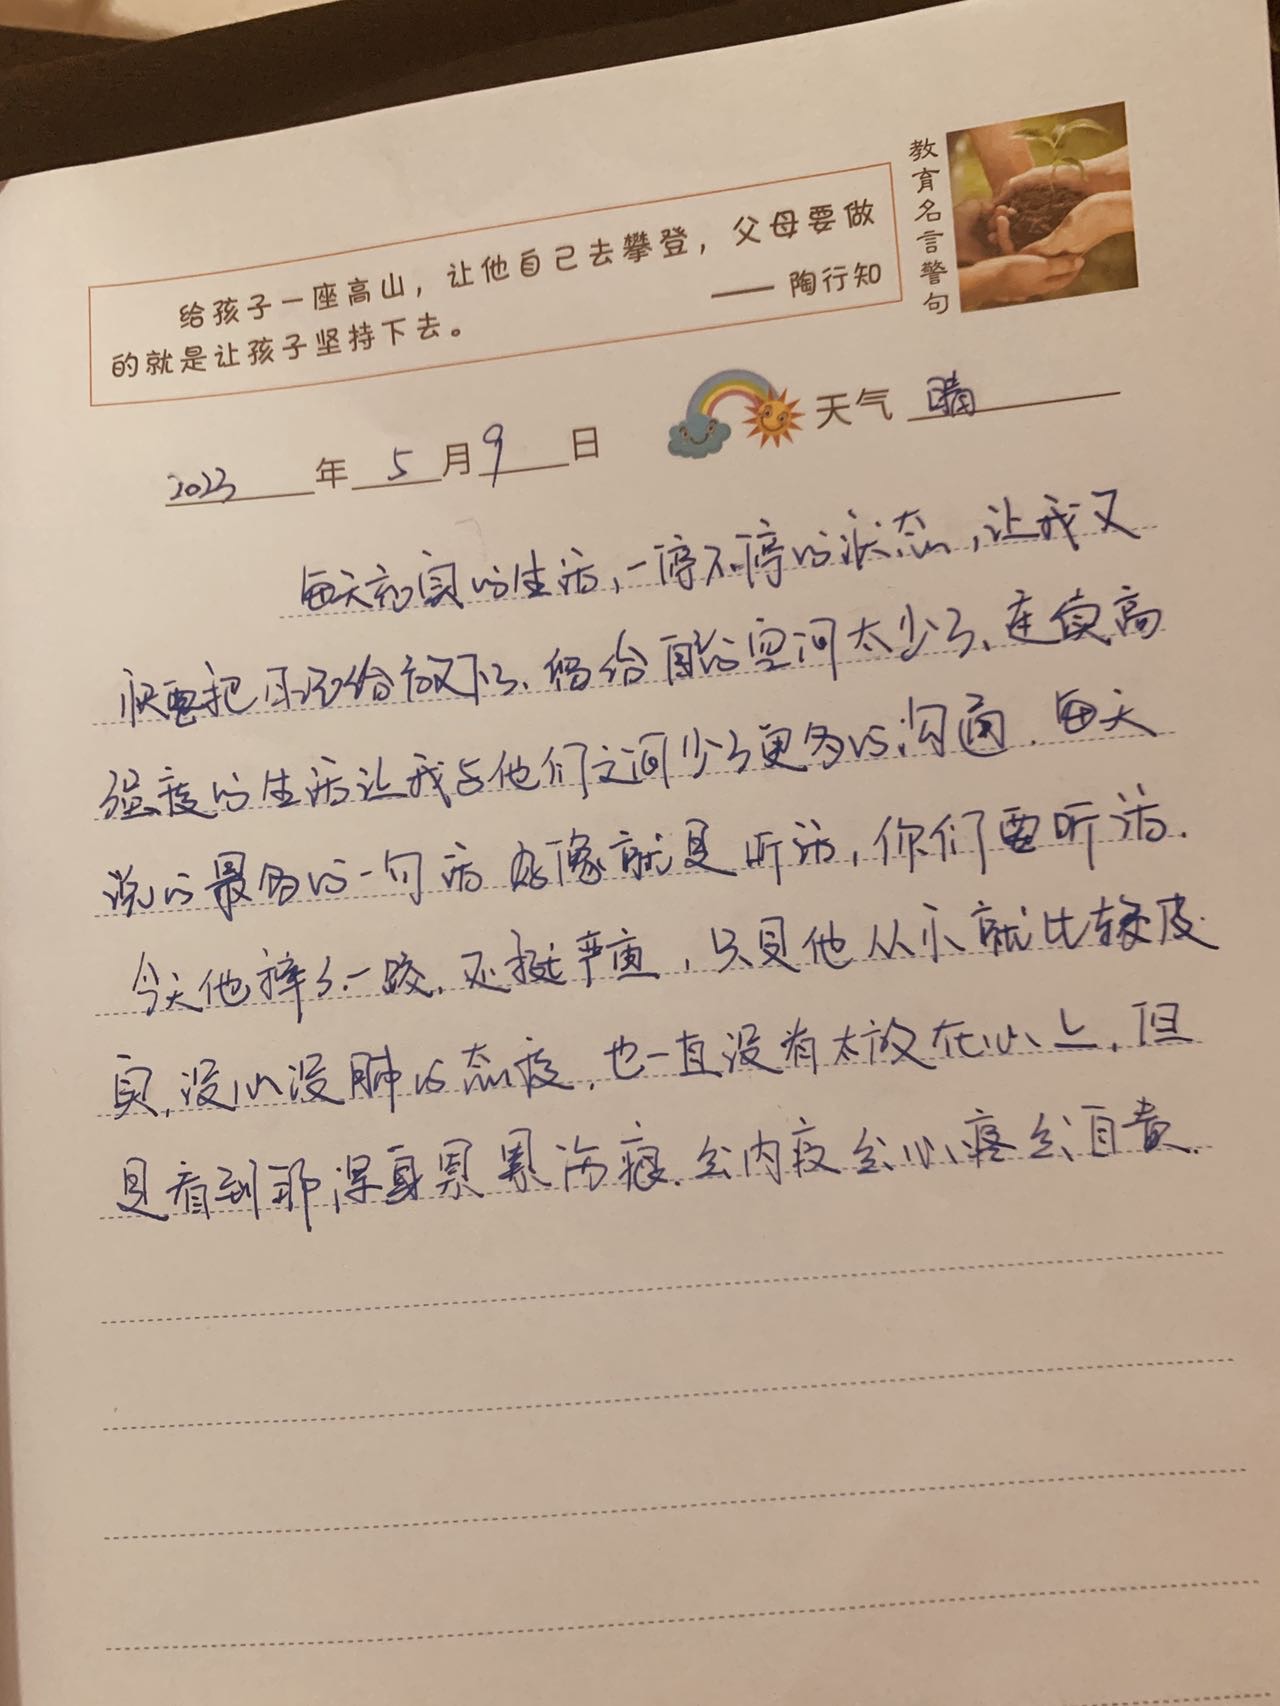 教育名言警句
给孩子一座高山，让他自己去攀登，父母要做
的就是让孩子坚持下去。
——陶行知
2023年5月9日
天气 晴
每天充实的生活，一停不停的状态，让我又
快要把日记给放下了、留给自己的空间太少了、连续高
强度的生活让我与他们之间少了更多的沟通．每天
说的最多的一句话好像就是听话，你们要听话．
今天他摔了一跤．还挺严重，只是他从小就比较皮
实，没心没肺的态度．也一直没有太放在心上．但
是看到那浑身累累伤痕．会内疚会心疼会自责．